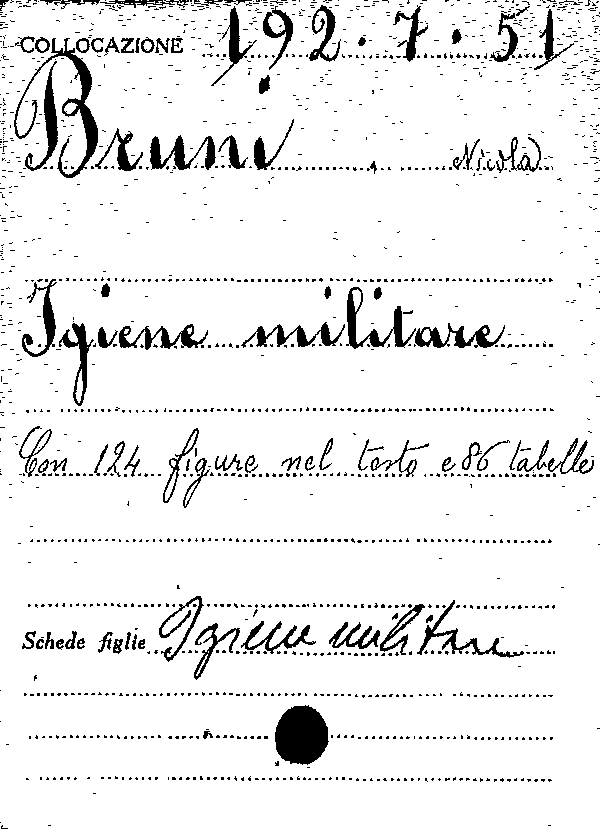 COLLOCAZIONE 192.7.51
Bruni, Nicola
Igiene militare
Con 124 figure nel testo e 86 tabelle
Schede figlie Igiene militare